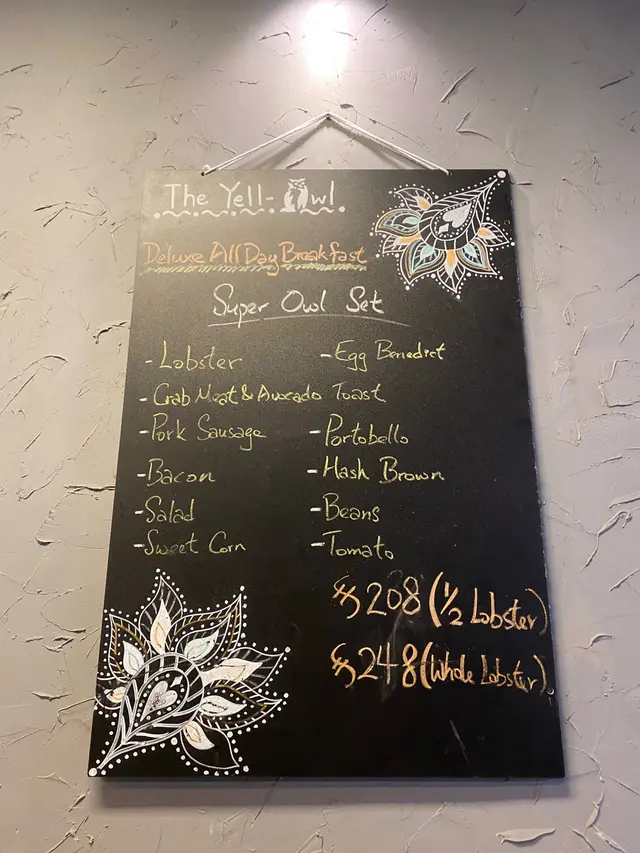 The Yell-Owl
Deluxe All Day Breakfast
Super Owl Set
- Lobster - Egg Benedict
- Crab Meat & Avocado Toast
- Pork Sausage - Portobello
- Bacon - Hash Brown
- Salad - Beans
- Sweet Corn - Tomato
$208 (1/2 Lobster)
$248 (Whole Lobster)